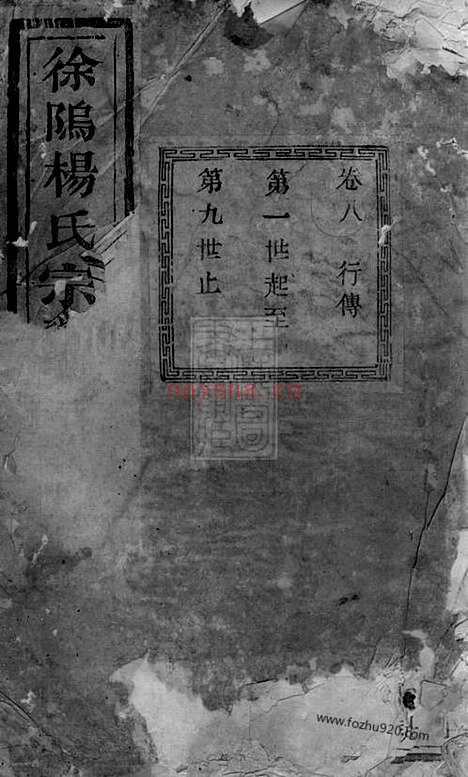 徐鴭楊氏宗
卷八 行傳
第一世起至
第九世止
nayona.cn
www.fozhu920.com